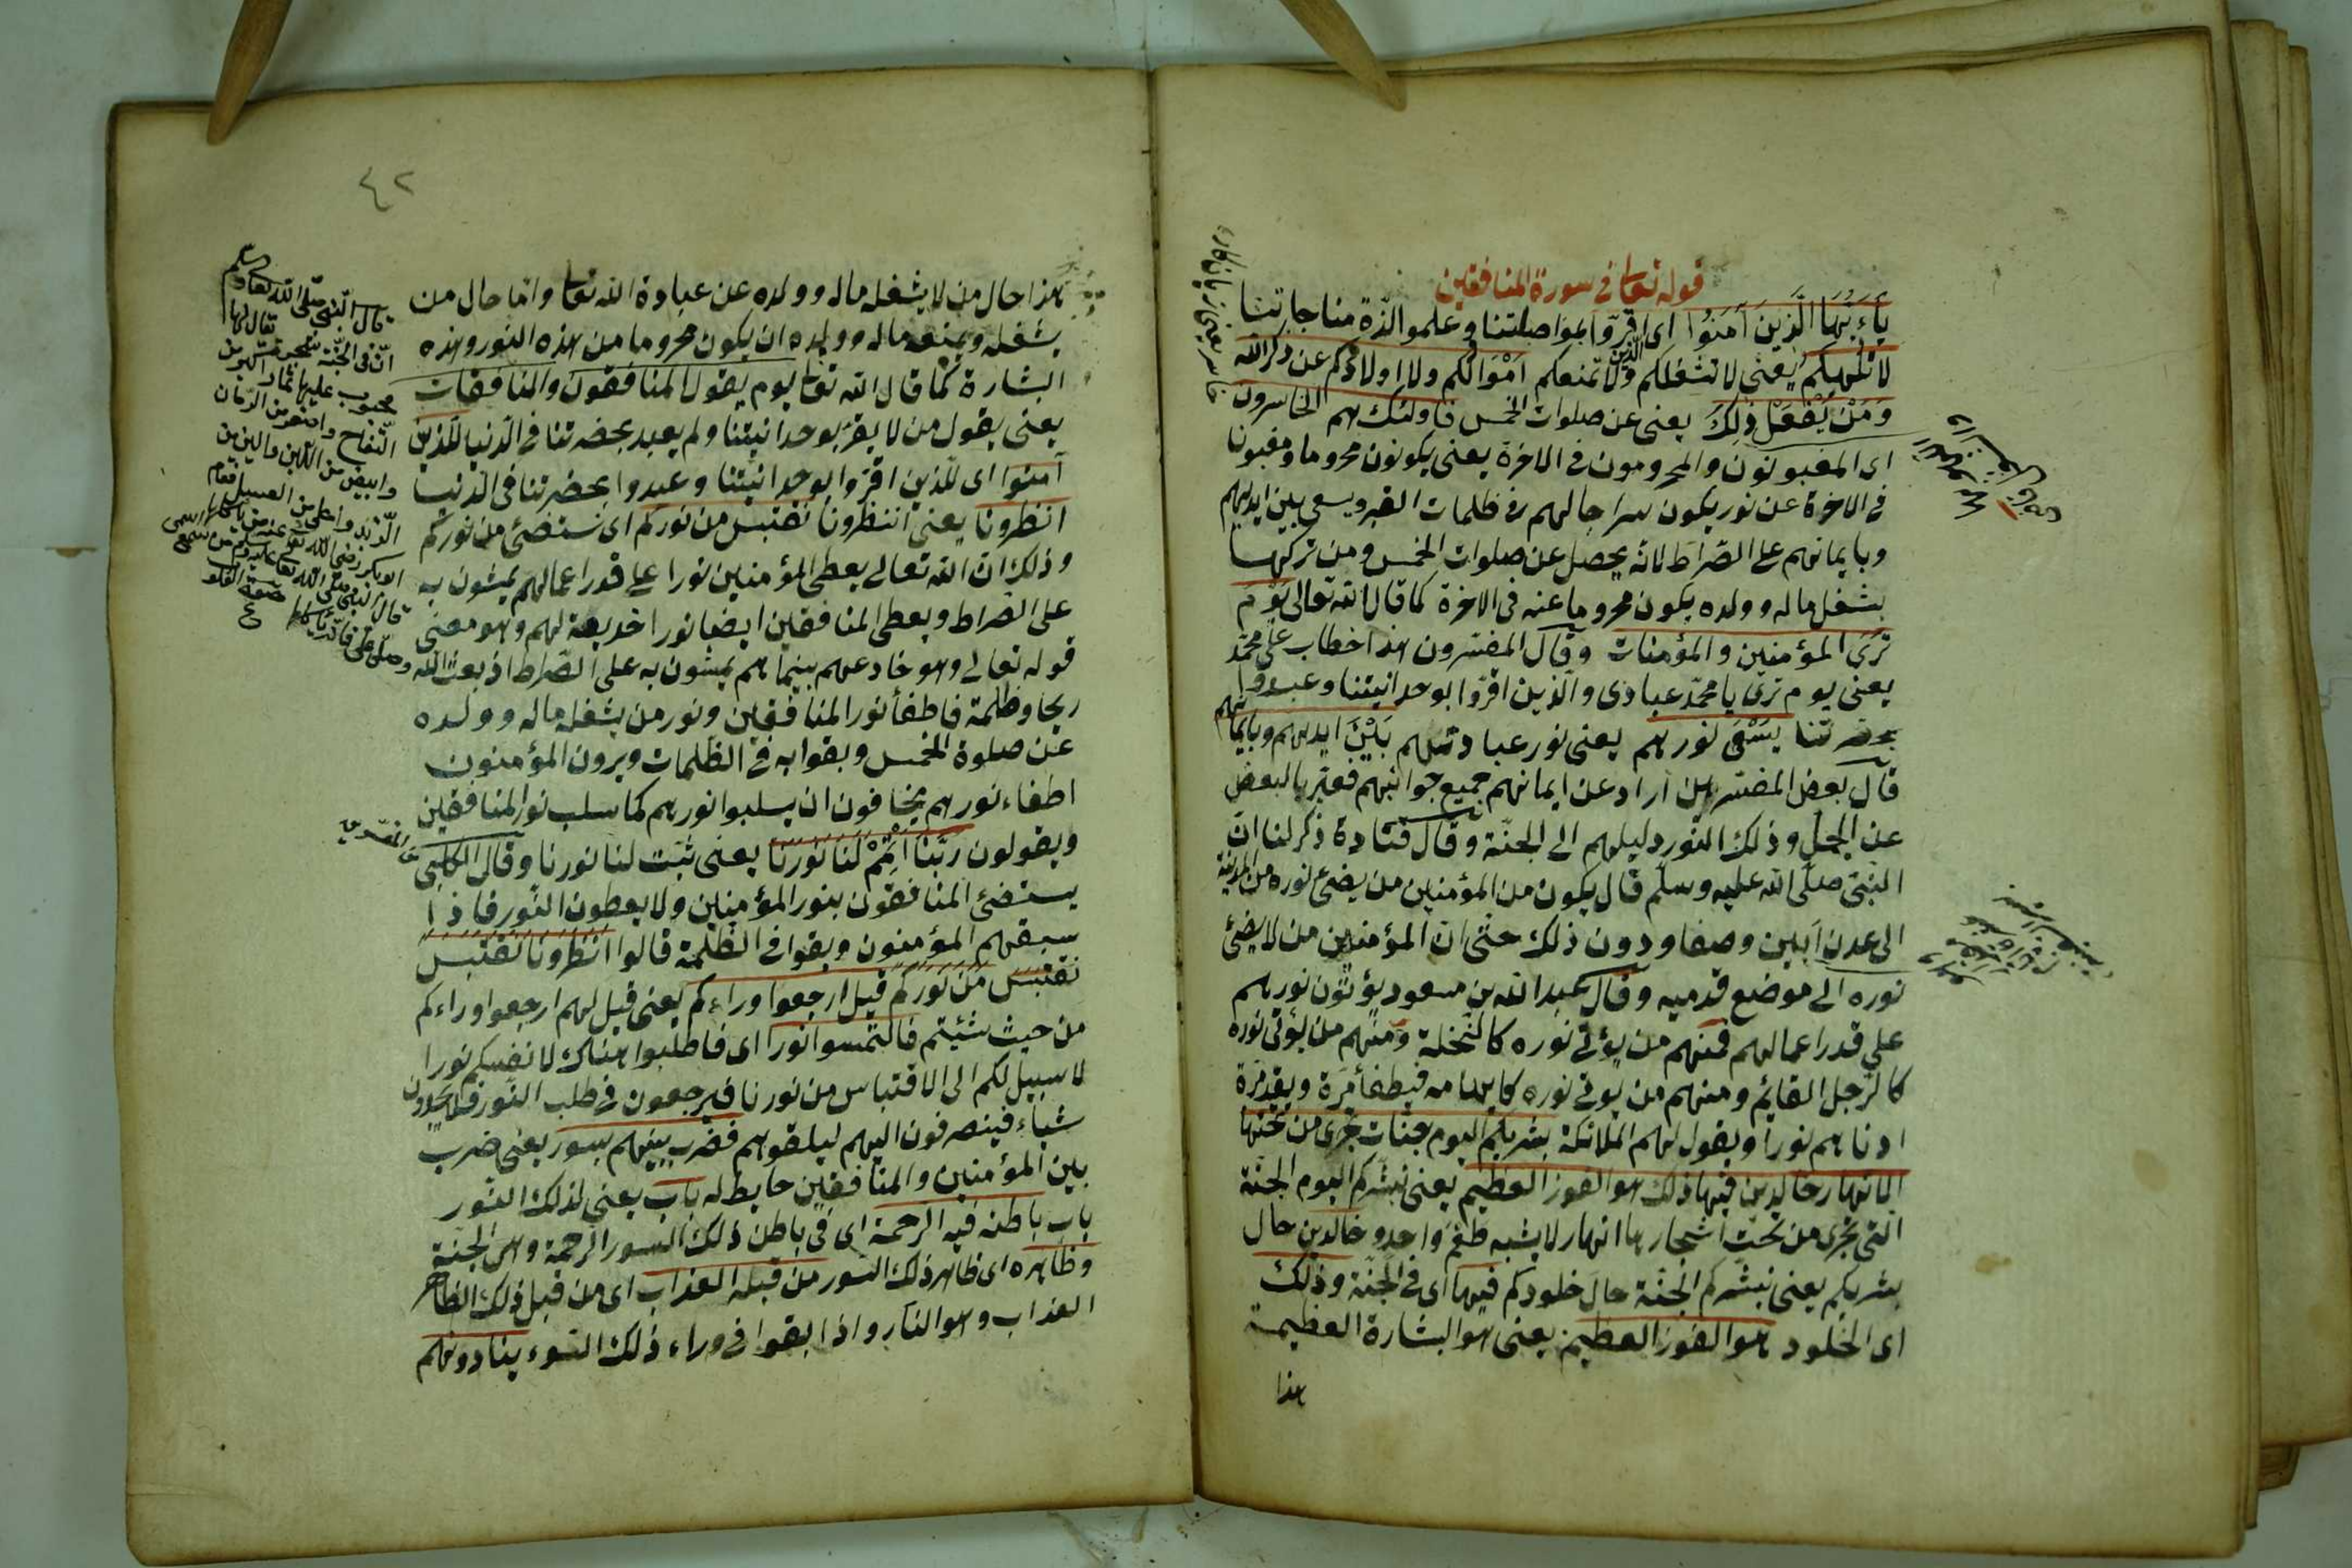 قوله تعالى في سورة المنافقين
يا ايها الذين آمنوا اى اقرّوا بمواصلتنا وعلموا الذّة مناجاتنا
لا تلهيكم يعنى لا تشغلكم ولا تمنعكم اموالكم ولا اولادكم عن ذكر الله
ومن يفعل ذلك يعنى عن صلوات الخمس فاولئك هم الخاسرون
اى المغبونون والمحرومون فى الاخرة يعنى يكونون محروما ومغبونا
فى الاخرة عن نور يكون سراجا لهم فى ظلمات القبر ويسعى بين ايديهم
وبايمانهم على الصّراط لانّه يحصل عن صلوات الخمس ومن تركها
بشغل ماله وولده يكون محروما عنه فى الاخرة كما قال الله تعالى يوم
ترى المؤمنين والمؤمنات وقال المفسرون هذا خطاب على محمّد
يعنى يوم ترى يا محمّد عبادى والّذين اقرّوا بوحدانيتنا وعبدوا
بحضرتنا يسعى نورهم يعنى نور عبادتهم بين ايديهم وبايمانهم
قال بعض المفسرين اراد عن ايمانهم جميع جوانبهم فعبّر بالبعض
عن الجمل وذلك النور دليلهم الى الجنّة وقال قتادة ذكر لنا انّ
النبىّ صلّى الله عليه وسلّم قال يكون من المؤمنين من يضىء نوره من المدينة
الى عدن ابين وصفا ودون ذلك حتّى انّ المؤمنين من لا يضئ
نوره الى موضع قدميه وقال عبد الله بن مسعود يؤتون نورهم
على قدر اعمالهم فمنهم من يؤتى نوره كالنّخلة ومنهم من يؤتى نوره
كالرّجل القايم ومنهم من يوتى نوره كابهامه فيطفأ مرّة ويقد مرّة
ادناهم نورا ويقول لهم الملائكة بشريكم اليوم جنات تجرى من تحتها
الانهار خالدين فيها ذلك هو الفوز العظيم يعنى نبشّركم اليوم الجنّة
الّتى تجرى من تحت اشجارها انهار لا يشبه طعم واحد وخالدين حال
بشريكم يعنى نبشّركم الجنّة حال خلودكم فيها اى فى الجنّة وذلك
اى الخلود هو الفوز العظيم يعنى هو البشارة العظيمة
هذا
٤٢
هذا حال من لا يشغله ماله وولده عن عبادة الله تعالى وامّا حال من
يشغله ويمنعه ماله وولده ان يكون محروما من هذه النور وهذه
البشارة كما قال الله تعالى يوم يقول المنافقون والمنافقات
يعنى يقول من لا يقرّ بوحدانيّتنا ولم يعبد بحضرتنا فى الدّنيا للّذين
آمنوا اى للّذين اقرّوا بوحدانيّتنا وعبدوا بحضرتنا فى الدّنيا
انظرونا يعنى انتظرونا نقتبس من نوركم اى نستضئ من نوركم
وذلك انّ الله تعالى يعطى المؤمنين نورا على قدر اعمالهم يمشون به
على الصراط ويعطى المنافقين ايضا نورا خديعة لهم وهو معنى
قوله تعالى وهو خادعهم بينما هم يمشون به على الصّراط اذ بعث الله
ريحا وظلمة فاطفأ نور المنافقين ونور من يشغله ماله وولده
عن صلوة الخمس وبقوا به فى الظّلمات ويرون المؤمنون
اطفاء نورهم يخافون ان يسلبوا نورهم كما سلب نور المنافقين
ويقولون ربّنا اتمم لنا نورنا يعنى ثبّت لنا نورنا وقال الكلبى
يستضئ المنافقون بنور المؤمنين ولا يعطون النّور فاذا
سبقهم المؤمنون وبقوا فى الظّلمة قالوا انظرونا نقتبس
نقتبس من نوركم قيل ارجعوا وراءكم يعنى قيل لهم ارجعوا وراءكم
من حيث شئتم فالتمسوا نورا اى فاطلبوا هناك لانفسكم نورا
لا سبيل لكم الى الاقتباس من نورنا فيرجعون فى طلب النّور فلا يجدون
شياء فينصرفون اليهم ليلقوهم فضرب بينهم بسور يعنى ضرب
بين المؤمنين والمنافقين حايط له باب يعنى لذلك السّور
باب باطنه فيه الرحمة اى فى باطن ذلك السور الرحمة وهى الجنّة
وظاهره اى ظاهر ذلك السّور من قبله العذاب اى من قبل ذلك الظاهر
العذاب وهو النار واذا بقوا فى وراء ذلك السّوء ينادونهم
قال النّبى صلّى الله تعالى وسلم
انّ فى الجنّة شجرة